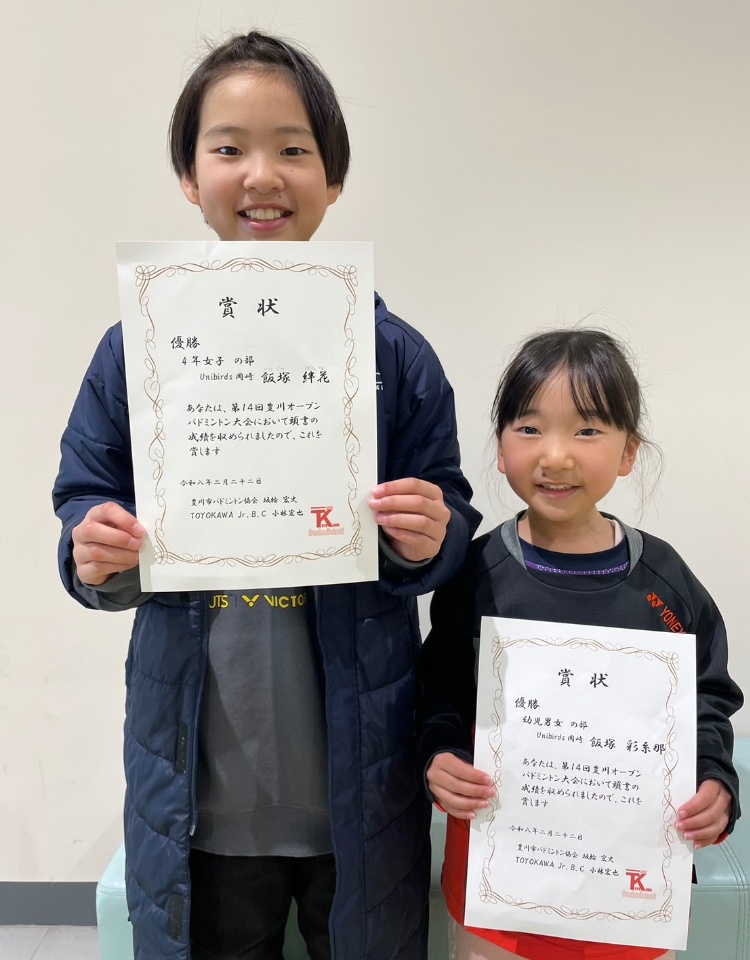 賞状
優勝
4年女子 の部
Unibirds岡崎 飯塚 絆花
あなたは、第14回豊川オープン
バドミントン大会において頭書の
成績を収められましたので、これを
賞します
令和八年二月二十二日
豊川市バドミントン協会 坂絵 宏史
TOYOKAWA Jr.B.C 小林宏也
TK
UTS VICTO
YONEX
賞状
優勝
幼児男女 の部
Unibirds岡崎 飯塚 彩糸那
あなたは、第14回豊川オープン
バドミントン大会において頭書の
成績を収められましたので、これを
賞します
令和八年二月二十二日
豊川市バドミントン協会 坂絵 宏史
TOYOKAWA Jr.B.C 小林宏也
TK